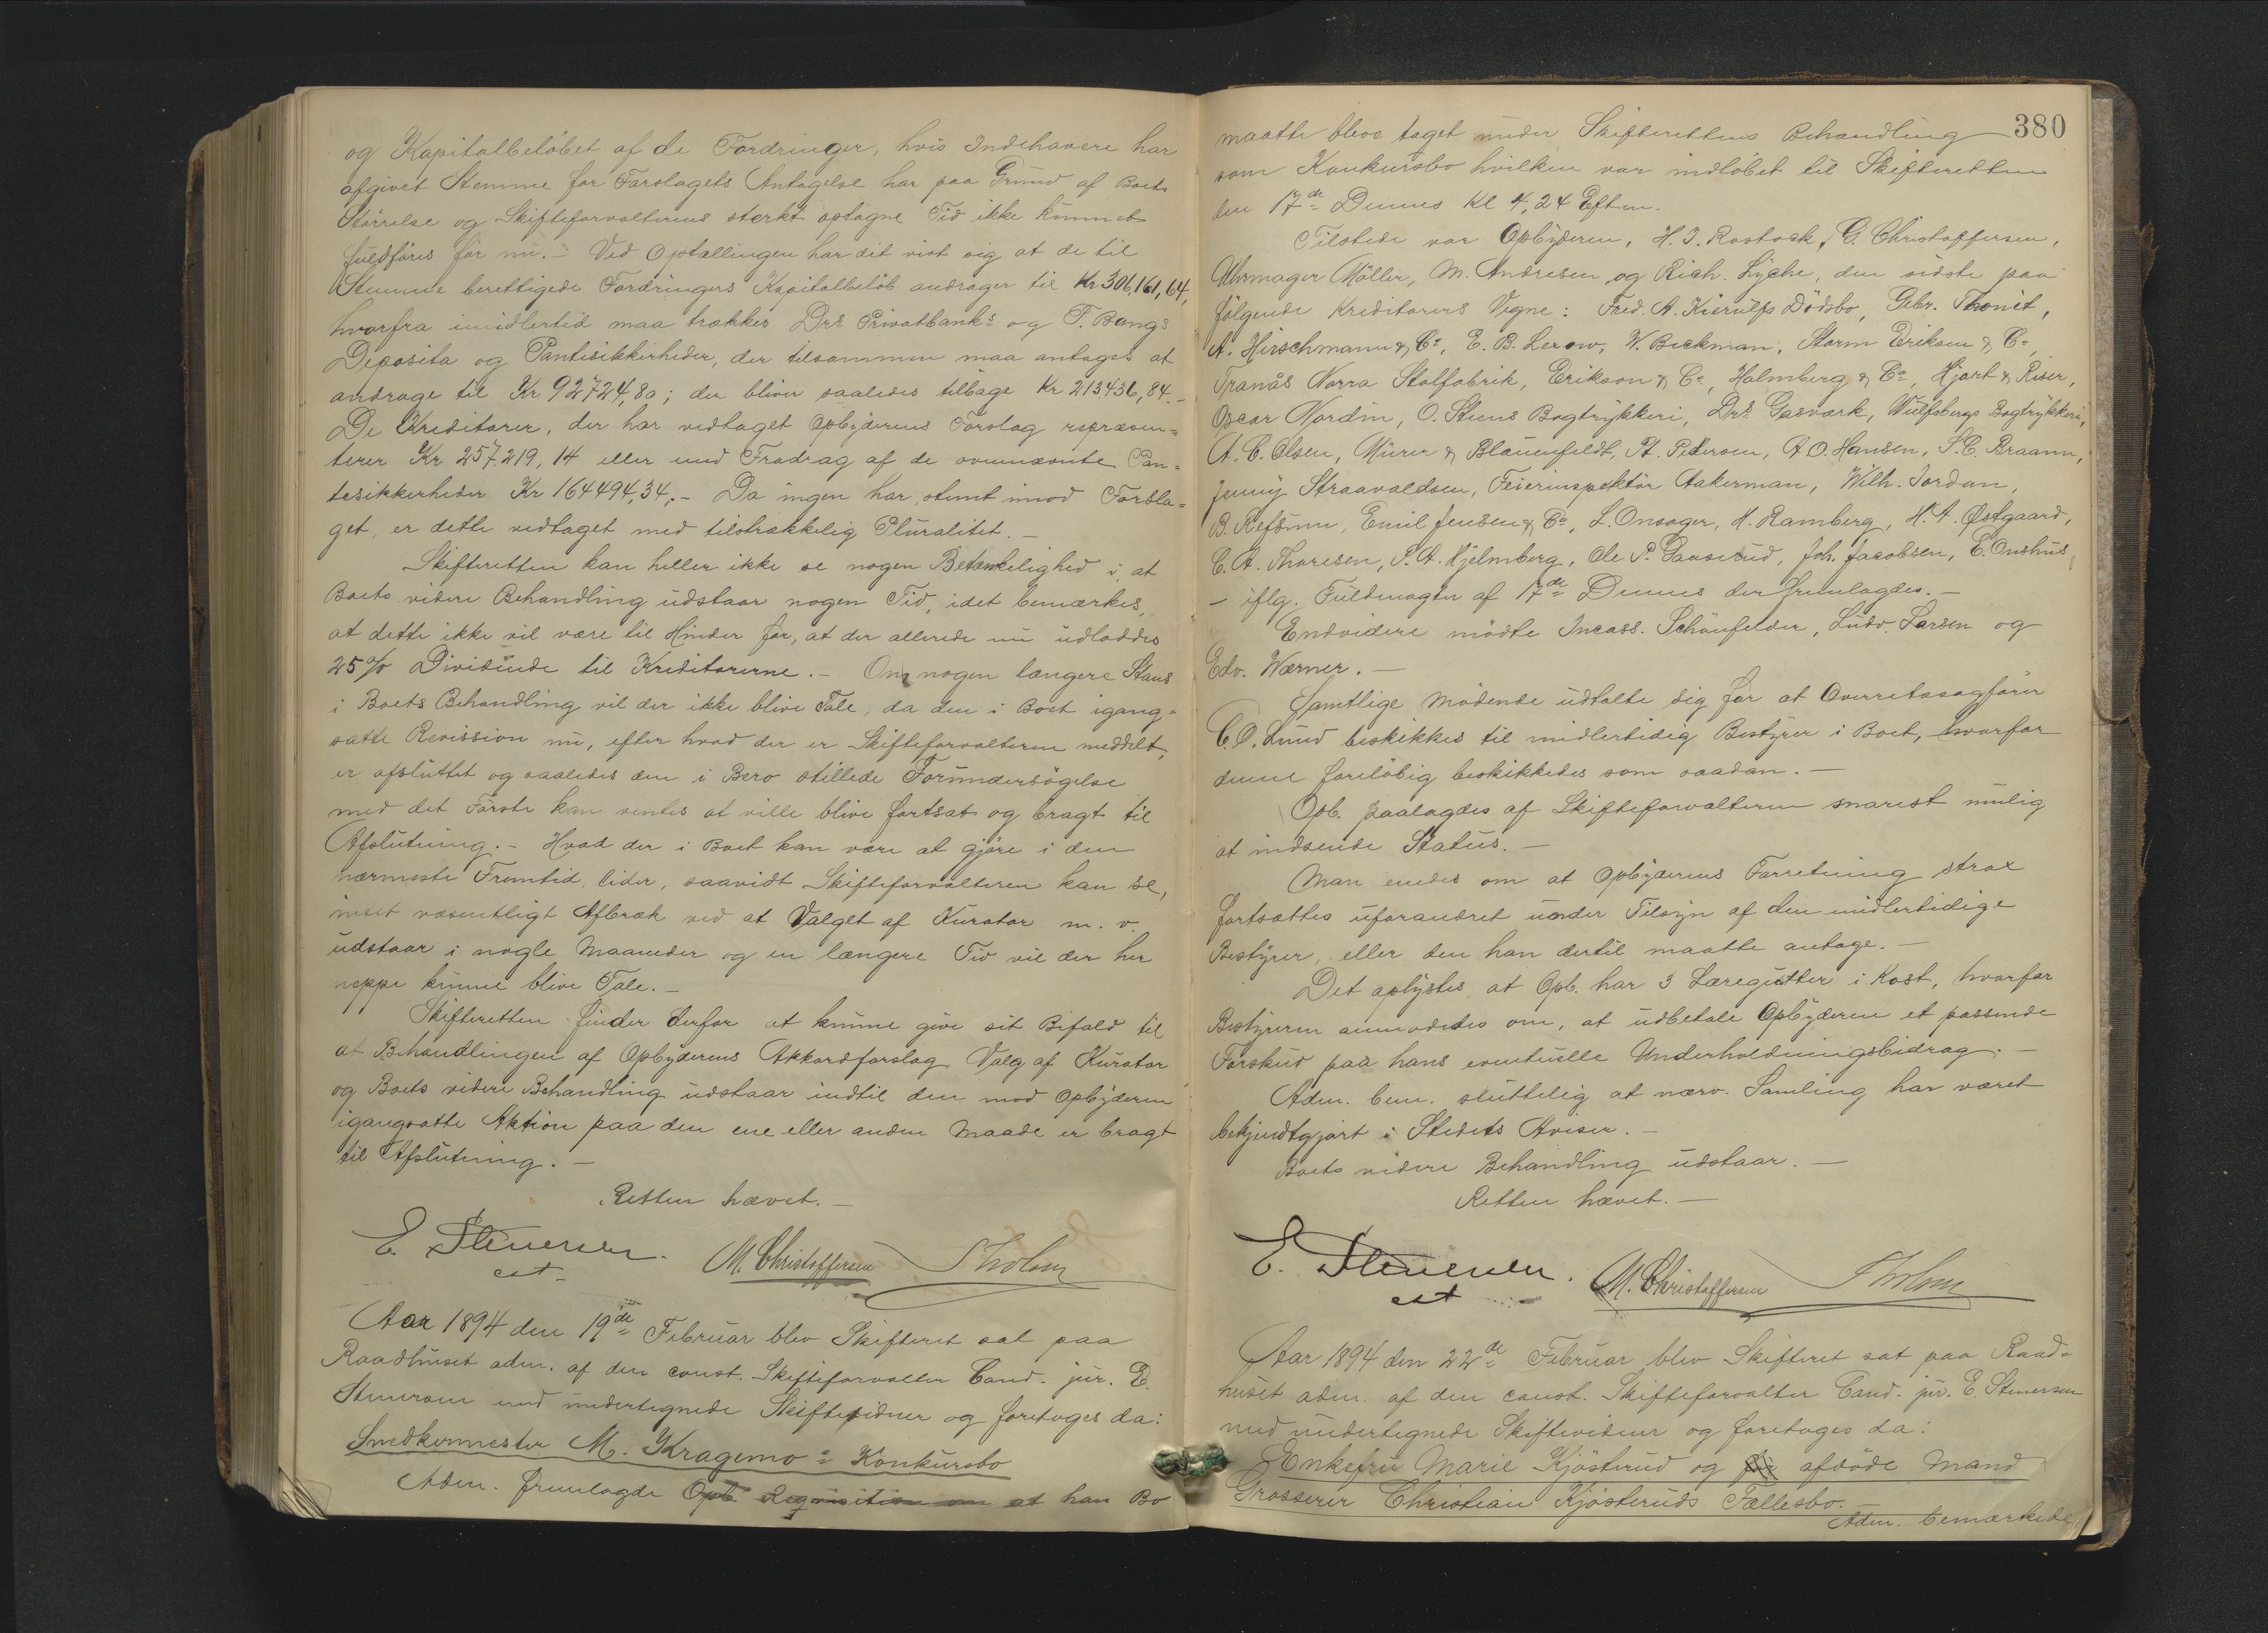 og Kapitalbeløbet af de Fordringer, hvis Indehavere har
afgivet Stemme for Forslagets Antagelse har paa Grund af Boets
Størrelse og Skifteforvalterens sterkt optagne Tid ikke kunnet
fuldføres før nu. – Ved Optællingen har det vist sig at de til
Stemme berettigede Fordringers Kapitalbeløb andrager til Kr 306,161,64,
hvorfra imidlertid maa trækkes Drs Privatbanks og T. Bangs
Deposita og Pantesikkerheder, der tilsammen maa antages at
andrage til Kr 92724,80; der bliver saaledes tilbage Kr 213436,84. –
De Kreditorer, der har vedtaget Opbyderens Forslag repræsen=
terer Kr 257.219,14 eller med Fradrag af de ovennævnte Pan=
tesikkerheder Kr 164494,34. – Da ingen har stemt imod Forsla=
get, er dette vedtaget med tilstrækkelig Pluralitet. –
Skifteretten kan heller ikke se nogen Betænkelighed i, at
Boets videre Behandling udstaar nogen Tid, idet bemærkes,
at dette ikke vil være til Hinder for, at der allerede nu udloddes
25 % Dividende til Kreditorerne. – Om nogen længere Stans
i Boets Behandling vil der ikke blive Tale, da den i Boet igang=
satte Revission nu, efter hvad der er Skifteforvalteren meddelt,
er afsluttet og saaledes den i Bero stillede Forundersøgelse
med det Første kan ventes at ville blive fortsat og bragt til
Afslutning. – Hvad der i Boet kan være at gjøre i den
nærmeste Fremtid lider, saavidt Skifteforvalteren kan se,
intet væsentligt Afbræk ved at Valget af Kurator m. v.
udstaar i nogle Maaneder og en længere Tid vil der her
neppe kunne blive Tale. –
Skifteretten finder derfor at kunne give sit Bifald til
at Behandlingen af Opbyderens Akkordforslag Valg af Kurator
og Boets videre Behandling udstaar indtil den mod Opbyderen
igangsatte Aktion paa den ene eller anden Maade er bragt
til Afslutning. –
Retten hævet. –
E. Stenersen. M. Christoffersen S Holm
cst
Aar 1894 den 19de Februar blev Skifteret sat paa
Raadhuset adm. af den const. Skifteforvalter Cand. jur. E.
Stenersen med undertegnede Skiftevidner og foretoges da:
Snedkermester M. Kragemo's Konkursbo
Adm. fremlagde Opb. Requisition om at hans Bo
380
maatte blive taget under Skifterettens Behandling
som Konkursbo hvilken var indløbet til Skifteretten
den 17de Dennes Kl 4,24 Eftm.
Tilstede var Opbyderen, H. J. Rostock, G. Christoffersen,
Uhrmager Møller, M. Andresen og Rich. Lyche, den sidste paa
følgende Kreditorers Vegne: Fred. A. Kierulfs Dødsbo, Gebr. Thonet,
A. Hirschmann & Co, E. B. Lerow, W. Beckman, Storm Eriksen & Co,
Tranås Norra Stolfabrik, Erikson & Co, Holmberg & Co, Hjort & Riser,
Oscar Nordin, O. Steens Bogtrykkeri, Drs Gasværk, Wulfsbergs Bogtrykkeri,
A. C. Olsen, Mürer & Blauenfeldt, Pt. Pedersen, A O. Hansen, S. C. Braann,
Jenny Straavaldsen, Feierinspektør Aakerman, Wilh. Jordan,
B. Refsum, Emil Jensen & Co, L. Onsager, H. Ramberg, H. A. Østgaard,
C. A. Thoresen, P. A. Hjelmberg, Ole P. Gaaserud, Joh. Jacobsen, E. Onshus
– iflg. Fuldmagter af 17de Dennes der fremlagdes. –
Endvidere mødte Incass. Schønfelder, Ludv. Larsen og
Edv. Wærner. –
Samtlige Mødende udtalte sig for at Overretssagfører
C. O. Lund beskikkes til midlertidig Bestyrer i Boet, hvorfor
denne foreløbig beskikkedes som saadan. –
Opb. paalagdes af Skifteforvalteren snarest mulig
at indsende Status. –
Man enedes om at Opbyderens Forretning strax
fortsættes uforandret under Tilsyn af den midlertidige
Bestyrer, eller den han dertil maatte antage. –
Det oplystes at Opb. har 3 Læregutter i Kost, hvorfor
Bestyreren anmodedes om, at udbetale Opbyderen et passende
Forskud paa hans eventuelle Underholdningsbidrag. –
Adm. bem. sluttelig at nærv. Samling har været
bekjendtgjort i Stedets Aviser. –
Boets videre Behandling udstaar. –
Retten hævet. –
E. Stenersen. M. Christoffersen S Holm
cst
Aar 1894 den 22de Februar blev Skifteret sat paa Raad=
huset adm. af den const. Skifteforvalter Cand. jur. E. Stenersen
med undertegnede Skiftevidner og foretoges da:
Enkefru Marie Kjøsterud og afdøde Mand
Grosserer Christian Kjøsteruds Fællesbo.
Adm. bemærkede